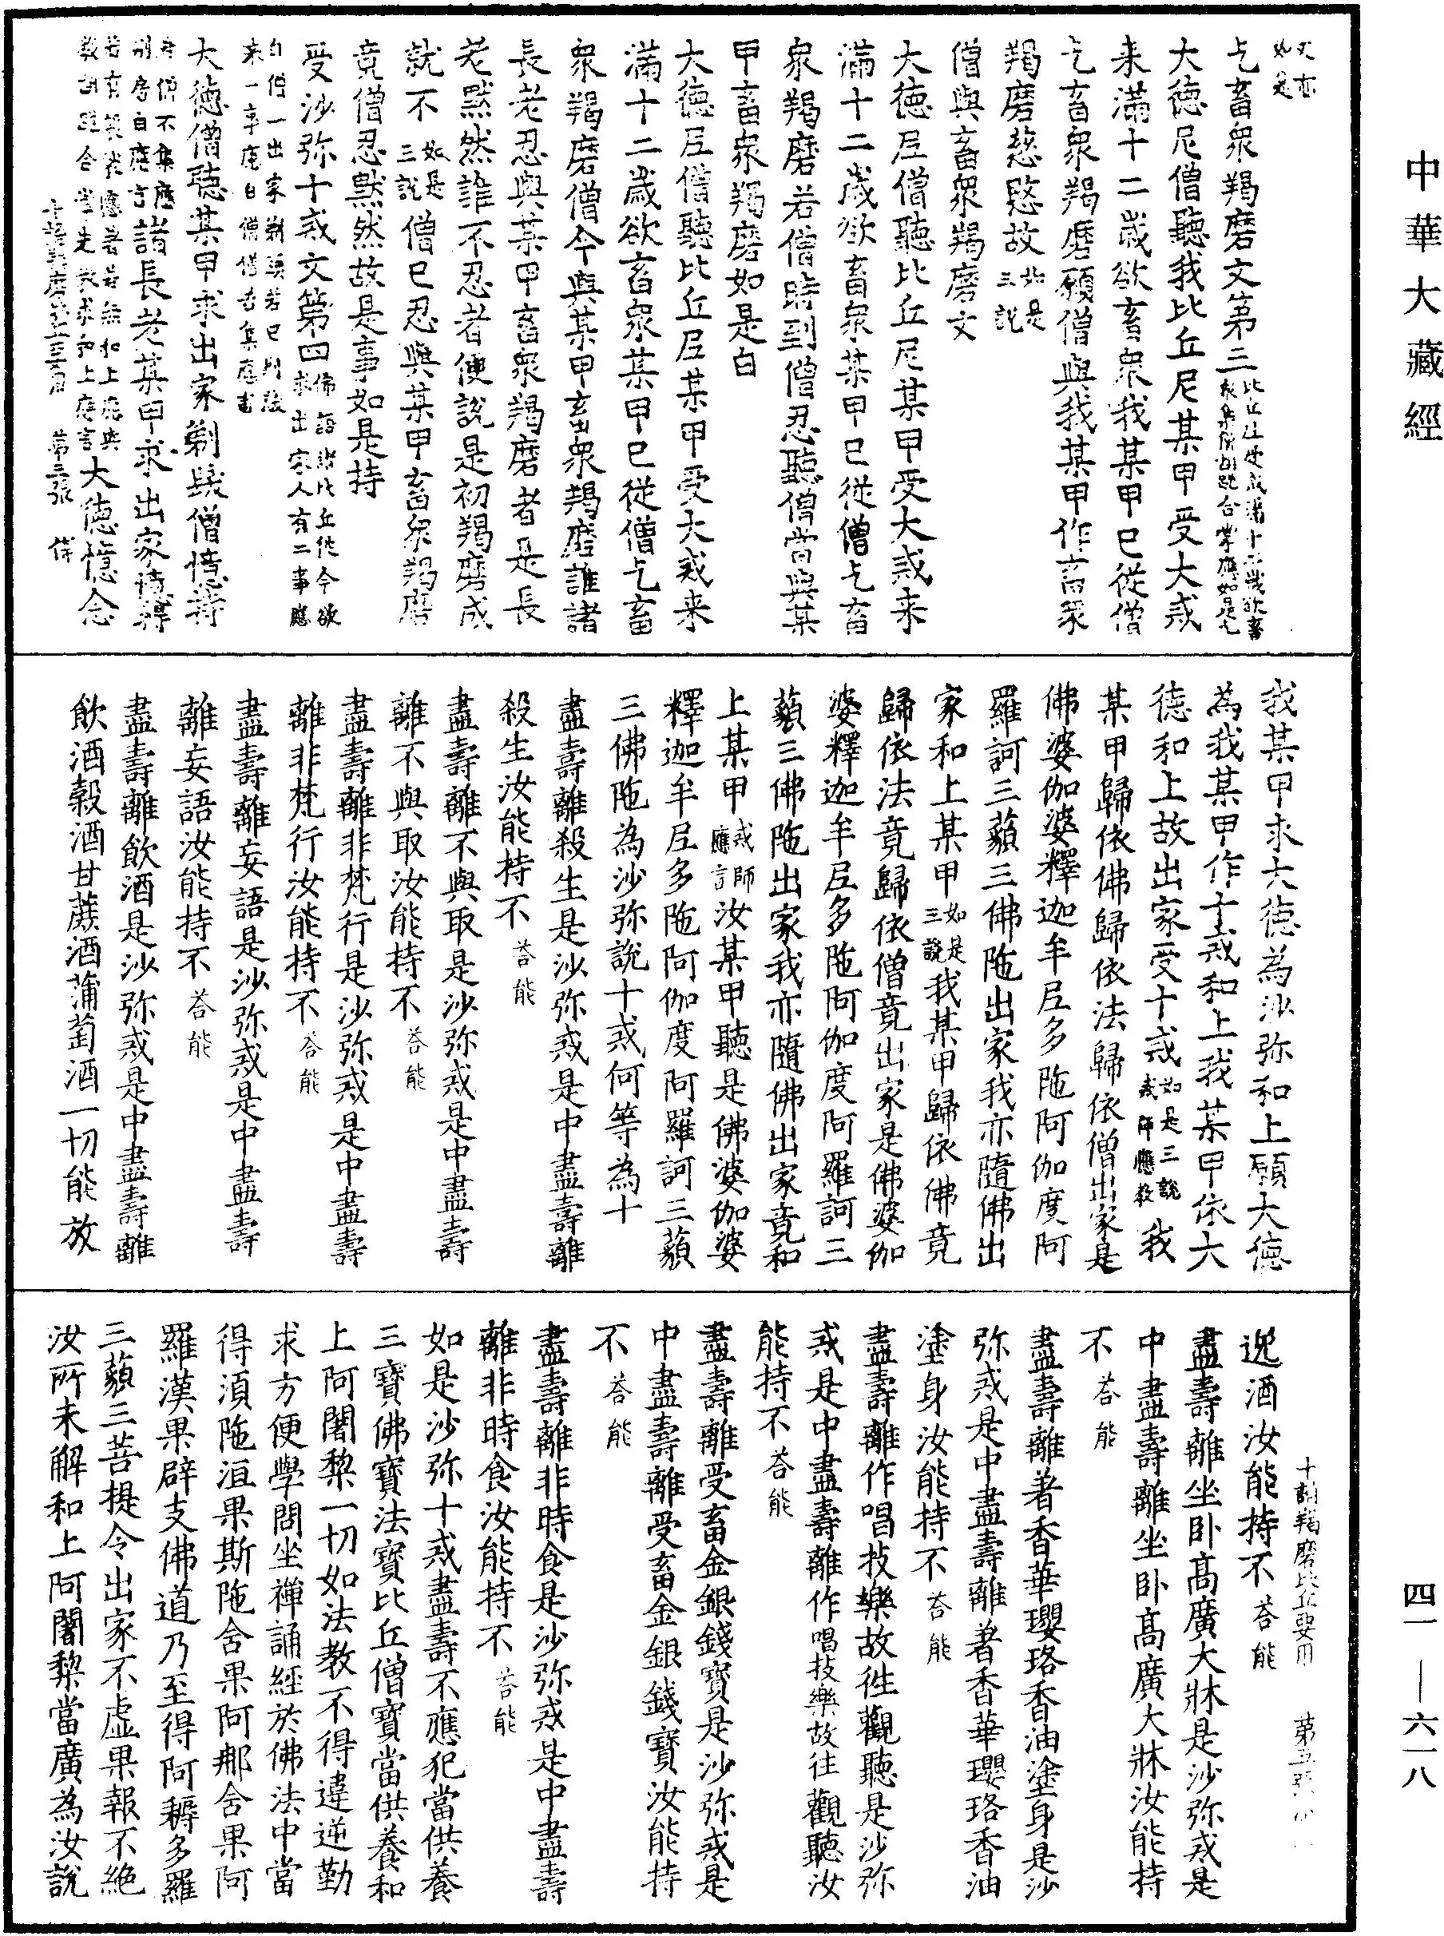 中華大藏經
文亦如是
乞畜衆羯磨文第三比丘尼受戒滿十二歲欲畜衆集僧胡跪合掌應如是乞
大德尼僧聽我比丘尼某甲受大戒
来滿十二歲欲畜衆我某甲已從僧
乞畜衆羯磨願僧與我某甲作畜衆
羯磨慈愍故如是三說
僧與畜衆羯磨文
大德尼僧聽比丘尼某甲受大戒来
滿十二歲欲畜衆某甲已從僧乞畜
衆羯磨若僧時到僧忍聽僧當與某
甲畜衆羯磨如是白
大德尼僧聽比丘尼某甲受大戒来
滿十二歲欲畜衆某甲已從僧乞畜
衆羯磨僧今與某甲畜衆羯磨誰諸
長老忍與某甲畜衆羯磨者是長
老默然誰不忍者便說是初羯磨成
就不如是三說僧已忍與某甲畜衆羯磨
竟僧忍默然故是事如是持
受沙弥十戒文第四佛語諸比丘從今欲求出家人有二事應
白僧一出家剃頭若已剃髮来一事應白僧僧若集應言
大德僧聽某甲求出家剃髮僧憶持
若僧不集應別房白應言諸長老某甲求出家憶持
若有袈裟應著若無和上應與教胡跪合掌先教求和上應言大德憶念
第三張
我某甲求大德為沙弥和上願大德
為我某甲作十戒和上我某甲依大
德和上故出家受十戒如是三說戒師應教我
某甲歸依佛歸依法歸依僧出家是
佛婆伽婆釋迦牟尼多陁阿伽度阿
羅訶三藐三佛陁出家我亦隨佛出
家和上某甲如是三說我某甲歸依佛竟
歸依法竟歸依僧竟出家是佛婆伽
婆釋迦牟尼多陁阿伽度阿羅訶三
藐三佛陁出家我亦隨佛出家竟和
上某甲戒師應言汝某甲聽是佛婆伽婆
釋迦牟尼多陁阿伽度阿羅訶三藐
三佛陁為沙弥說十戒何等為十
盡壽離殺生是沙弥戒是中盡壽離
殺生汝能持不荅能
盡壽離不與取是沙弥戒是中盡壽
離不與取汝能持不荅能
盡壽離非梵行是沙弥戒是中盡壽
離非梵行汝能持不荅能
盡壽離妄語是沙弥戒是中盡壽
離妄語汝能持不荅能
盡壽離飲酒是沙弥戒是中盡壽離
飲酒穀酒甘蔗酒蒲萄酒一切能放
十誦羯磨比丘要用　第五張
逸酒汝能持不荅能
盡壽離坐卧高廣大牀是沙弥戒是
中盡壽離坐卧高廣大牀汝能持
不荅能
盡壽離著香華瓔珞香油塗身是沙
弥戒是中盡壽離著香華瓔珞香油
塗身汝能持不荅能
盡壽離作唱技樂故徃觀聽是沙弥
戒是中盡壽離作唱技樂故往觀聽汝
能持不荅能
盡壽離受畜金銀錢寶是沙弥戒是
中盡壽離受畜金銀錢寶汝能持
不荅能
盡壽離非時食是沙弥戒是中盡壽
離非時食汝能持不荅能
如是沙弥十戒盡壽不應犯當供養
三寶佛寶法寶比丘僧寶當供養和
上阿闍黎一切如法教不得違逆勤
求方便學問坐禪誦經於佛法中當
得湏陁洹果斯陁含果阿那含果阿
羅漢果辟支佛道乃至得阿耨多羅
三藐三菩提令出家不虛果報不絶
汝所未解和上阿闍黎當廣為汝說
四一—六一八